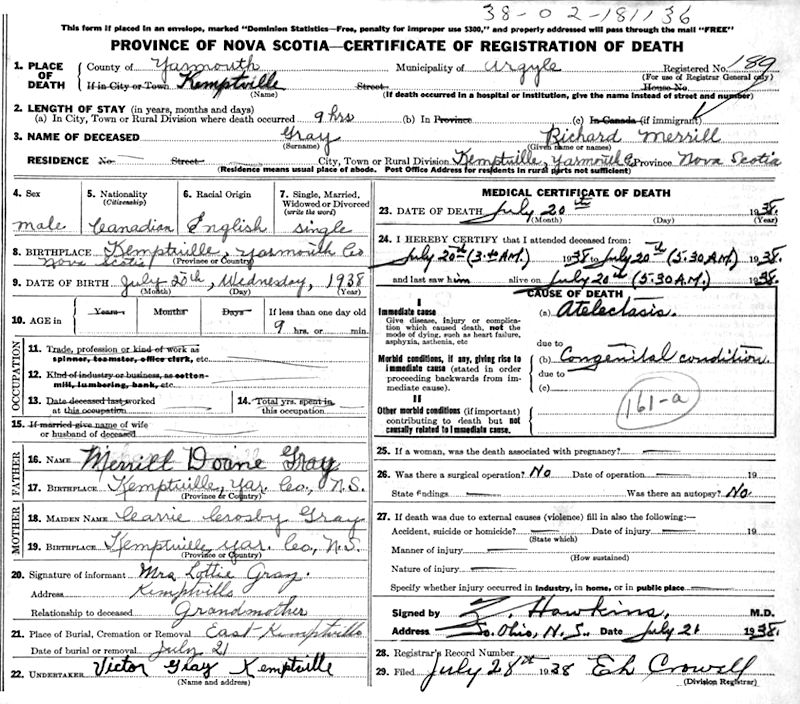 38-02-181136
This form if placed in an envelope, marked "Dominion Statistics—Free, penalty for improper use $300," and properly addressed will pass through the mail "FREE"
PROVINCE OF NOVA SCOTIA—CERTIFICATE OF REGISTRATION OF DEATH
1. PLACE OF DEATH County of Yarmouth Municipality of Argyle Registered No. 189
(For use of Registrar General only)
If in City or Town Kemptville Street House No.
(Name) (If death occurred in a hospital or institution, give the name instead of street and number)
2. LENGTH OF STAY (in years, months and days)
(a) In City, Town or Rural Division where death occurred 9 hrs (b) In Province (c) In Canada (if immigrant)
3. NAME OF DECEASED Gray Richard Merrill
(Surname) (Given name or names)
RESIDENCE No. Street City, Town or Rural Division Kemptville, Yarmouth Co Province Nova Scotia
(Residence means usual place of abode. Post Office Address for residents in rural parts not sufficient)
4. Sex 5. Nationality 6. Racial Origin 7. Single, Married,
(Citizenship) Widowed or Divorced
(write the word)
male Canadian English single
8. BIRTHPLACE Kemptville, Yarmouth Co
Nova Scotia (Province or Country)
9. DATE OF BIRTH July 20th, Wednesday, 1938
(Month) (Day) (Year)
10. AGE in Years Months Days If less than one day old
9 hrs. or min.
OCCUPATION
11. Trade, profession or kind of work as
spinner, teamster, office clerk, etc.
12. Kind of industry or business, as cotton-
mill, lumbering, bank, etc.
13. Date deceased last worked 14. Total yrs. spent in
at this occupation this occupation
15. If married give name of wife
or husband of deceased
FATHER
16. NAME Merrill Doane Gray
17. BIRTHPLACE Kemptville, Yar. Co., N.S.
(Province or Country)
MOTHER
18. MAIDEN NAME Carrie Crosby Gray
19. BIRTHPLACE Kemptville, Yar. Co., N.S.
(Province or Country)
20. Signature of informant Mrs Lottie Gray.
Address Kemptville
Relationship to deceased Grandmother
21. Place of Burial, Cremation or Removal East Kemptville
Date of burial or removal July 21
22. UNDERTAKER Victor Gray Kemptville
(Name and address)
MEDICAL CERTIFICATE OF DEATH
23. DATE OF DEATH July 20th 1938.
(Month) (Day) (Year)
24. I HEREBY CERTIFY that I attended deceased from:
July 20th (3. A.M.) 1938 to July 20th (5.30 A.M.) 1938.
and last saw him alive on July 20th (5.30 A.M.) 1938.
CAUSE OF DEATH
I
Immediate cause (a) Atelectasis.
Give disease, injury or complica-
tion which caused death, not the
mode of dying, such as heart failure,
asphyxia, asthenia, etc
due to
Morbid conditions, if any, giving rise to (b) Congenital condition.
immediate cause (stated in order due to
proceeding backwards from im- (c)
mediate cause).
II
Other morbid conditions (if important) 161-a
contributing to death but not
causally related to immediate cause.
25. If a woman, was the death associated with pregnancy?
26. Was there a surgical operation? No Date of operation 19
State findings Was there an autopsy? No.
27. If death was due to external causes (violence) fill in also the following:—
Accident, suicide or homicide? Date of injury 19
(State which)
Manner of injury
(How sustained)
Nature of injury
Specify whether injury occurred in industry, in home, or in public place
Signed by Z. Hawkins, M.D.
Address So. Ohio, N.S. Date July 21 1938.
28. Registrar's Record Number
29. Filed July 28th 1938 Eh Crowell
(Division Registrar)